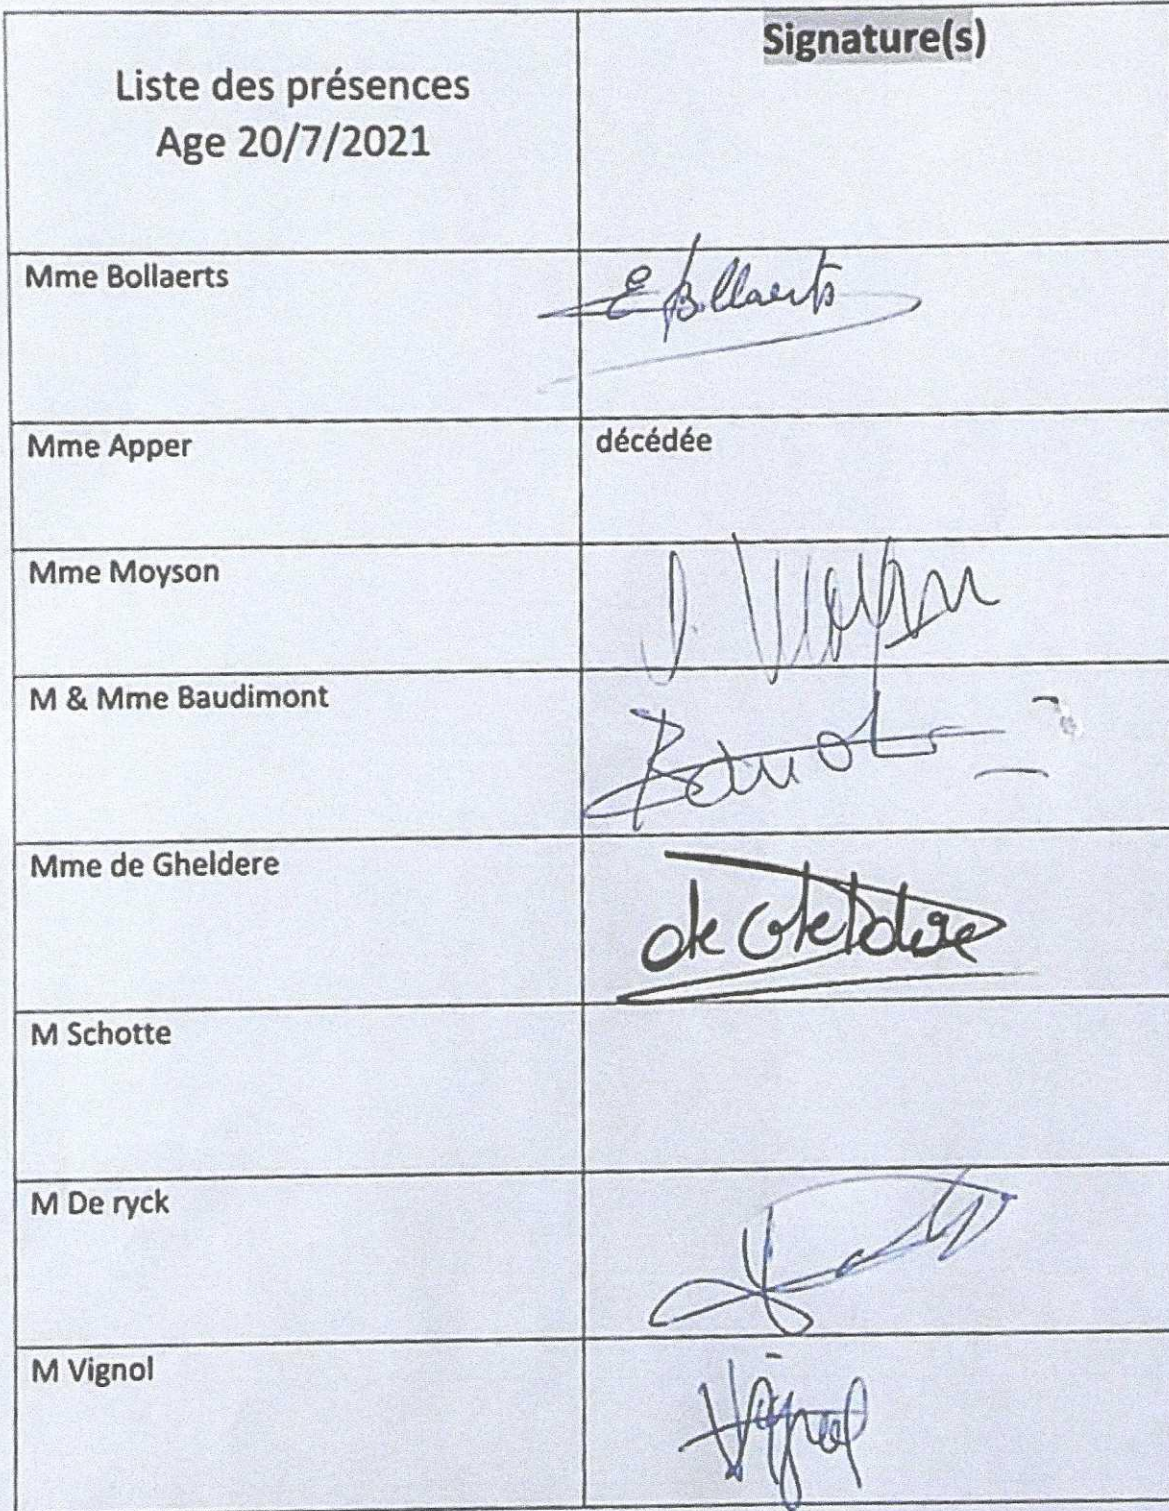 Liste des présences
Age 20/7/2021
Signature(s)
Mme Bollaerts
E Bollaerts
Mme Apper
décédée
Mme Moyson
Moyson
M & Mme Baudimont
Mme de Gheldere
de Gheldere
M Schotte
M De ryck
M Vignol
Vignol